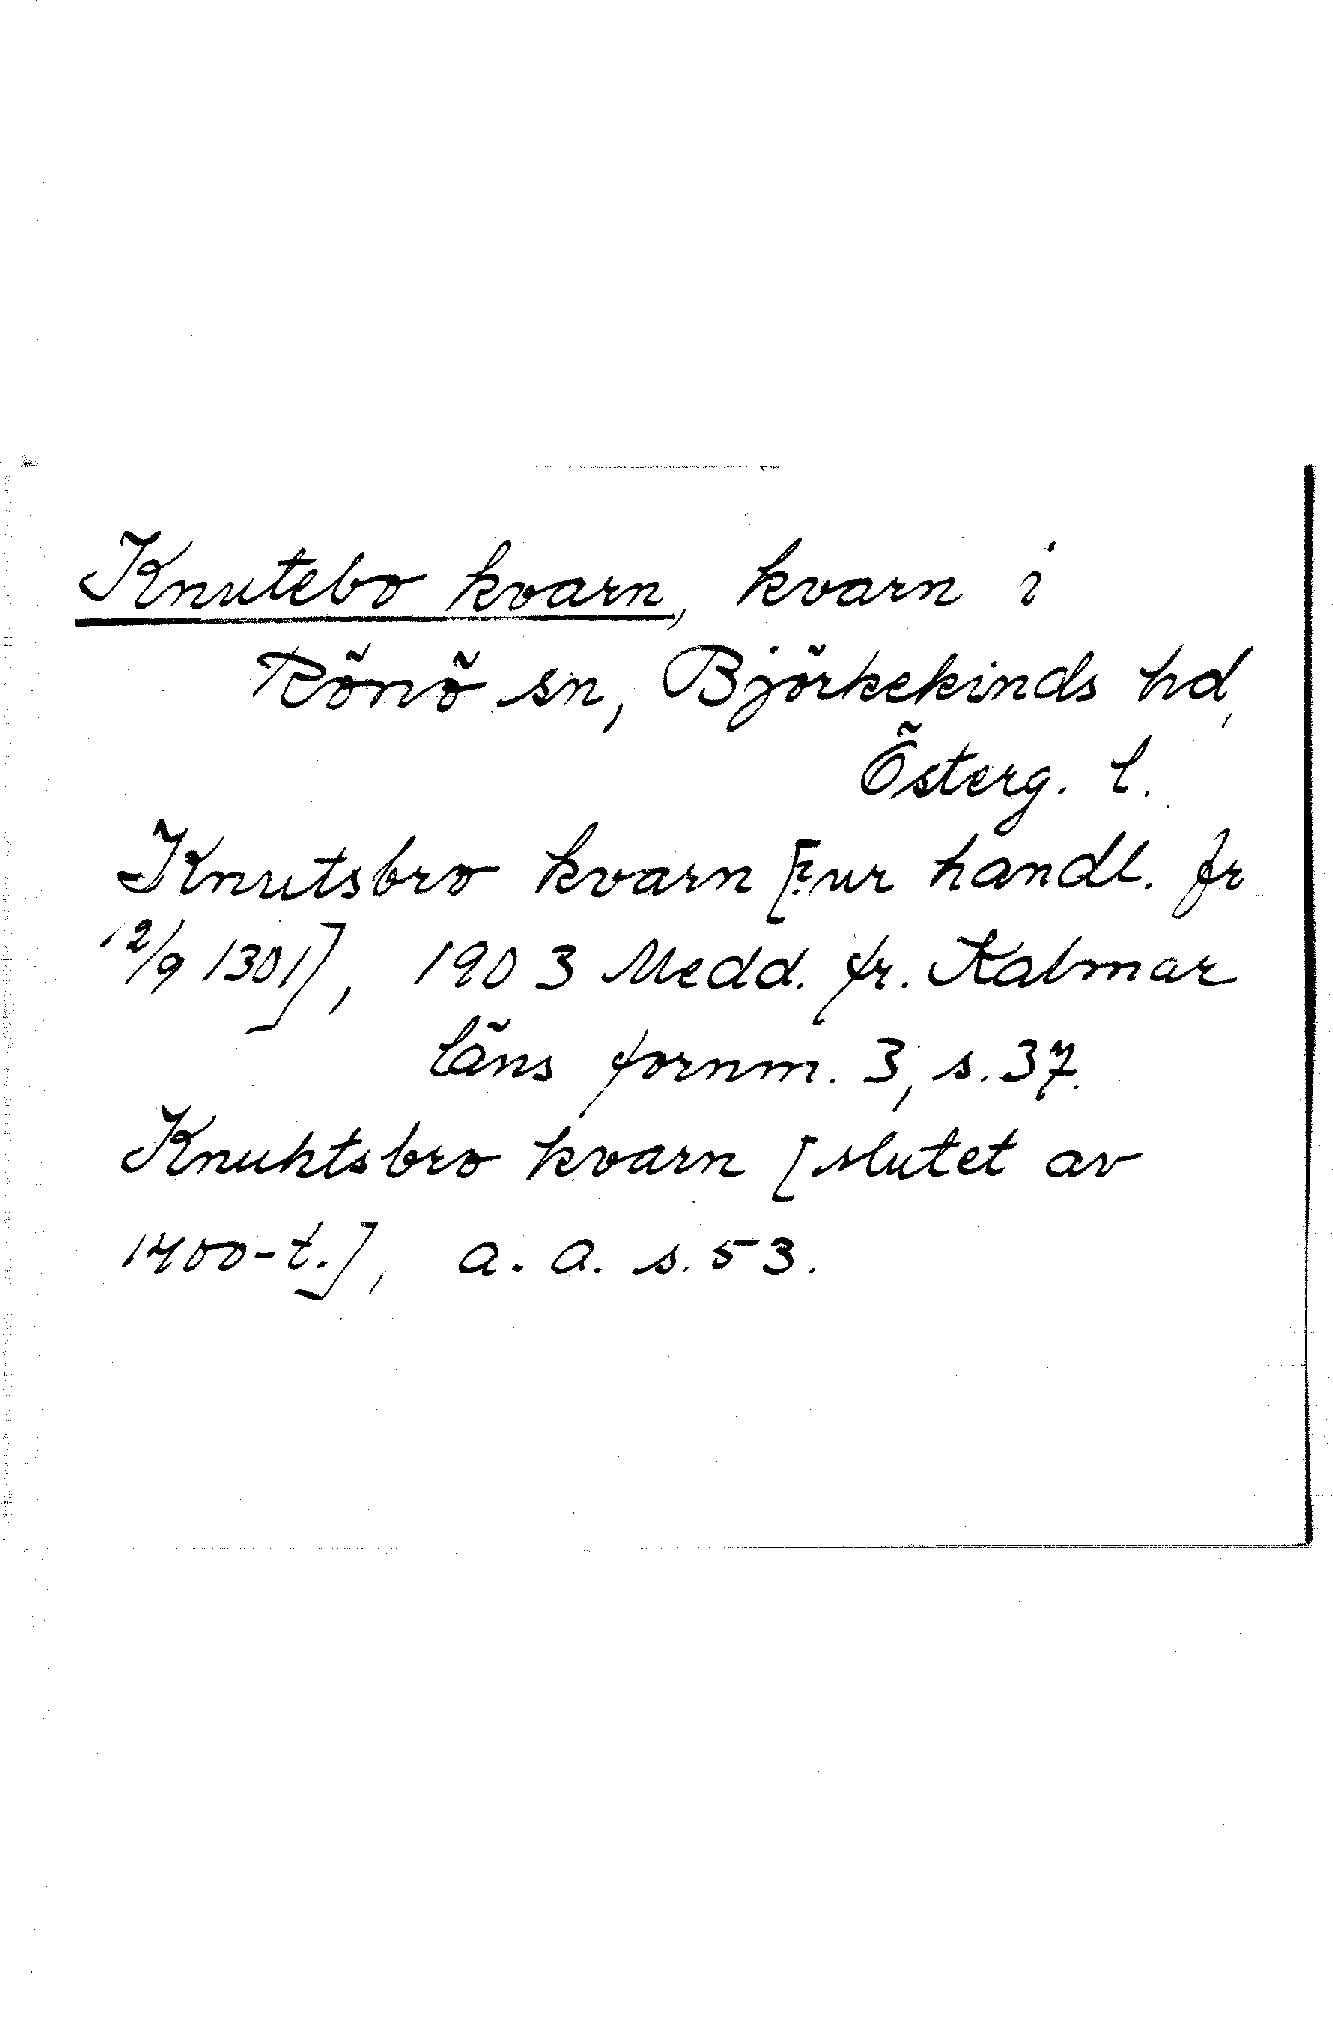 Knutebo kvarn, kvarn i
Rönö sn, Björkekinds hd,
Österg. l.
Knutsbro kvarn [: ur handl. fr
12/9 1301], 1903 Medd. fr. Kalmar
läns fornm. 3, s. 37.
Knuhtsbro kvarn [slutet av
1400-t.], a. a. s. 53.